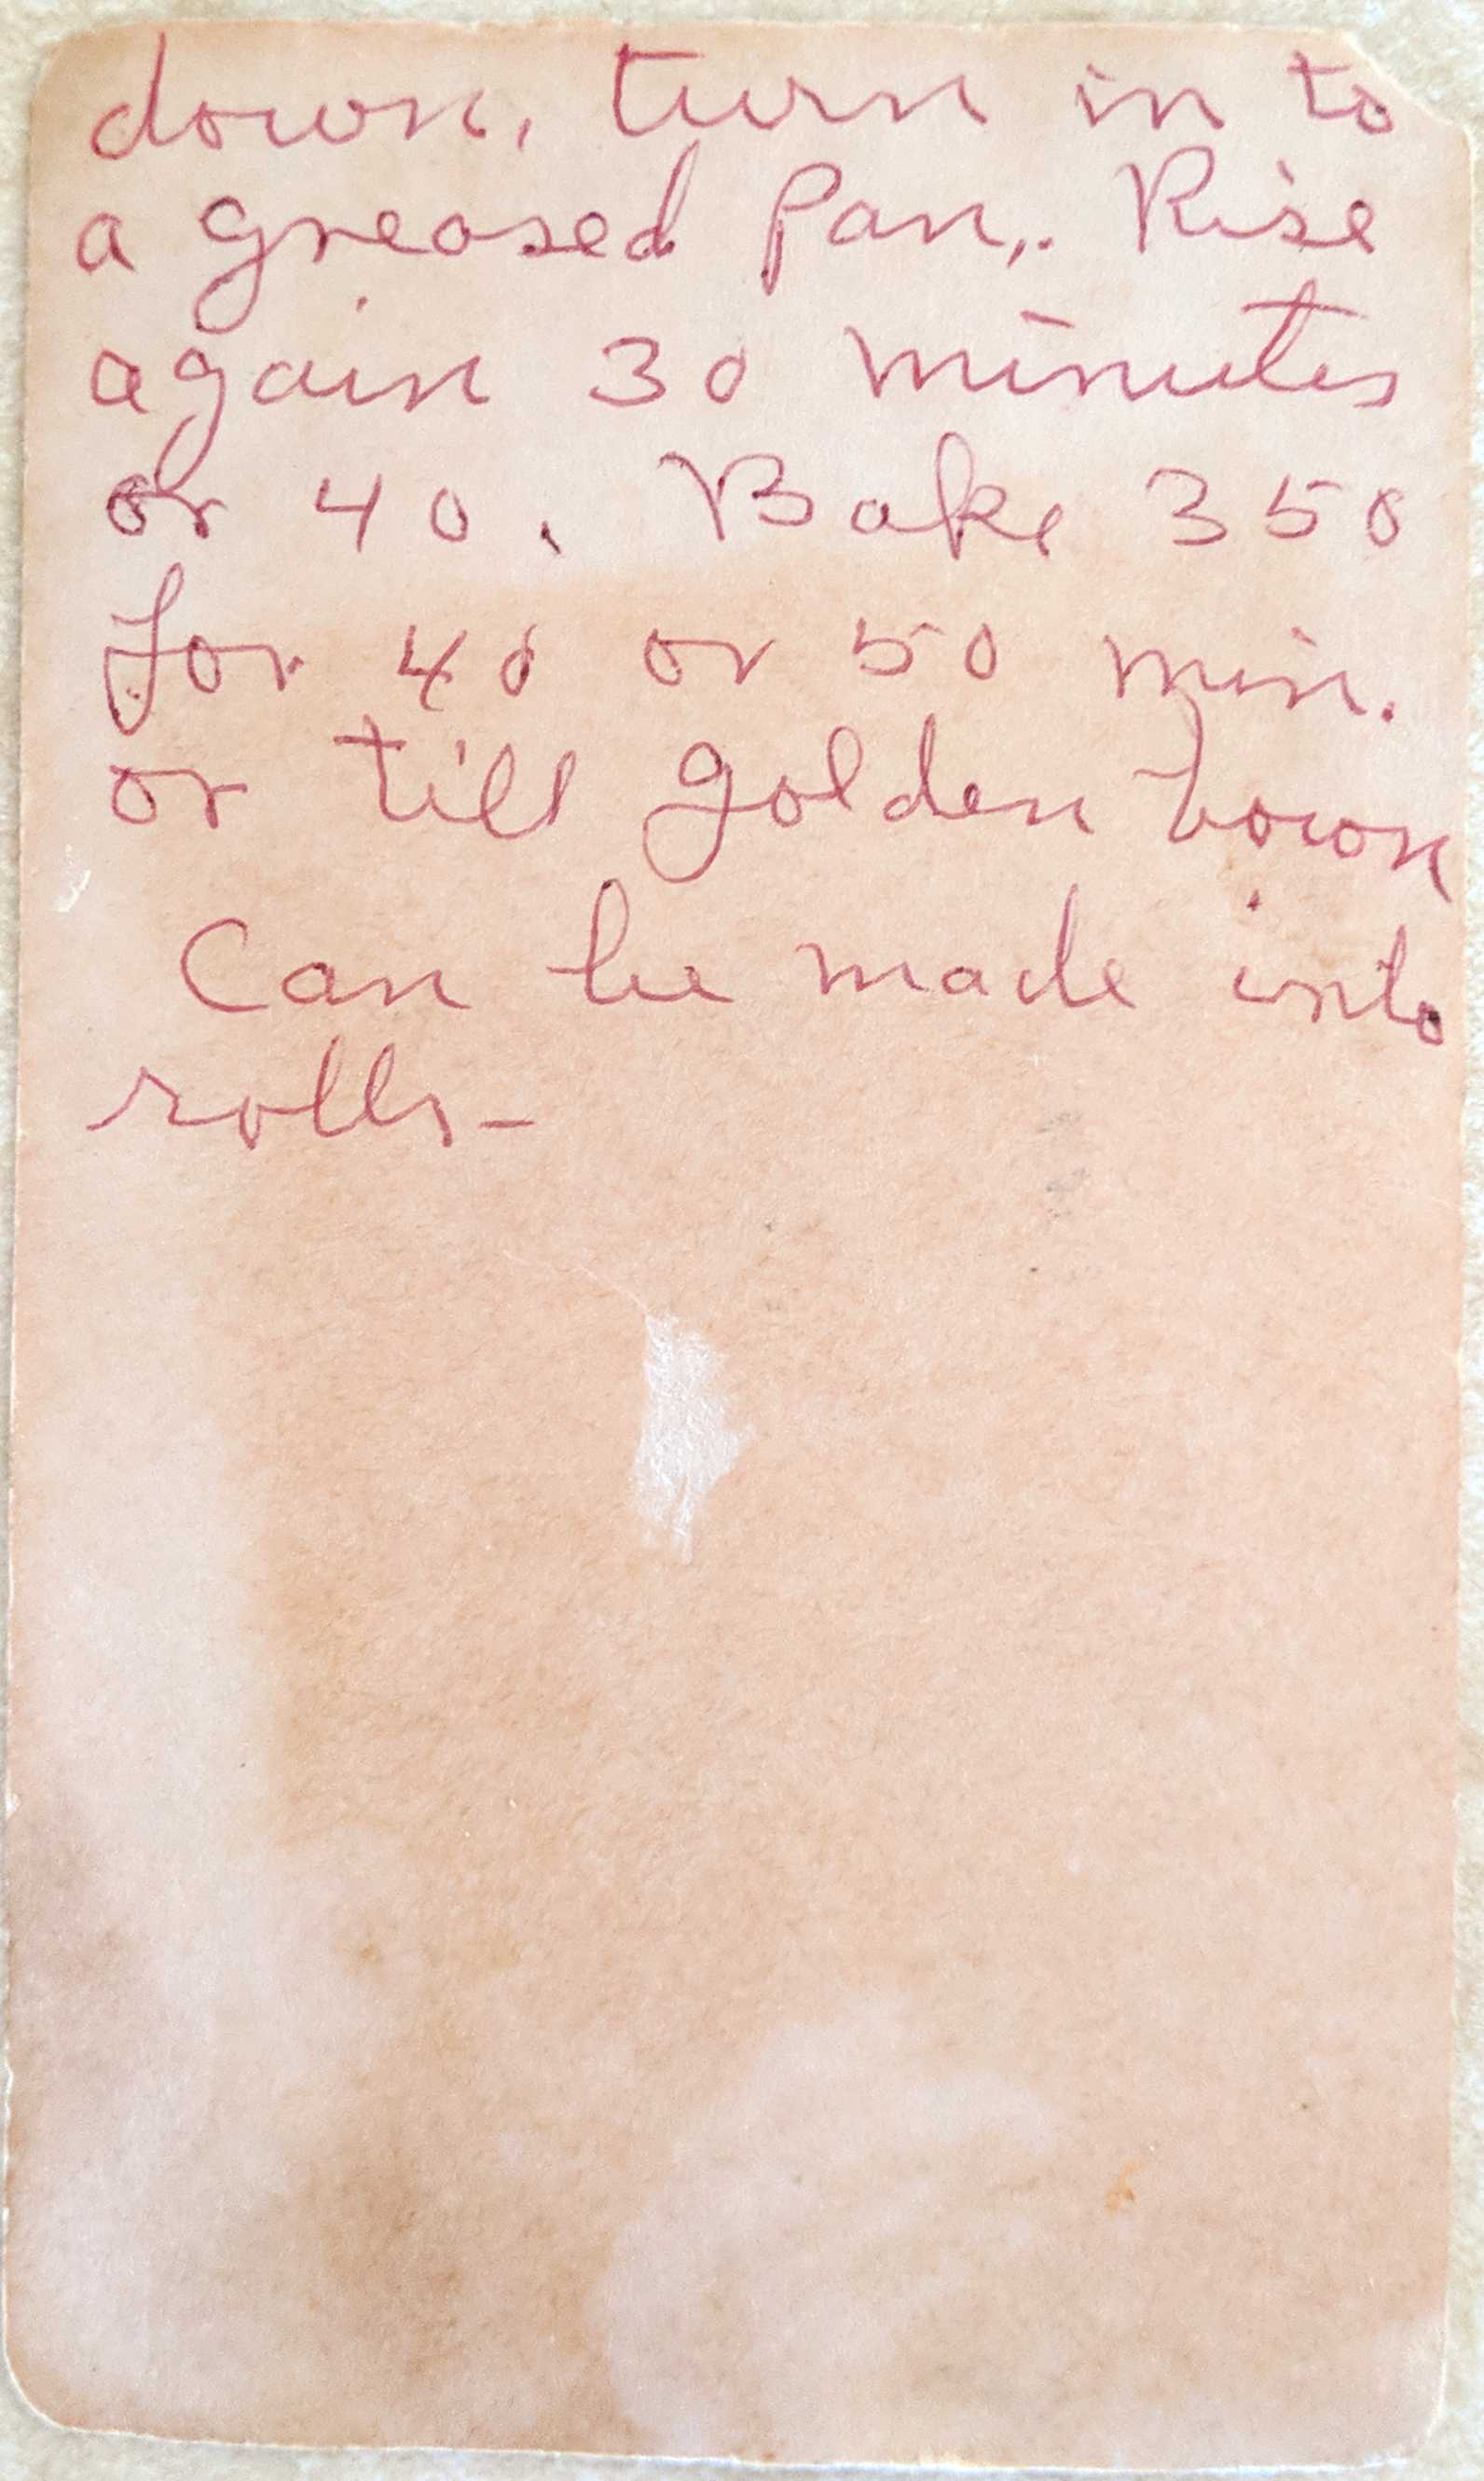 down, turn in to
a greased pan,. Rise
again 30 minutes
or 40. Bake 350
for 40 or 50 min.
or till golden brown
Can be made into
rolls-